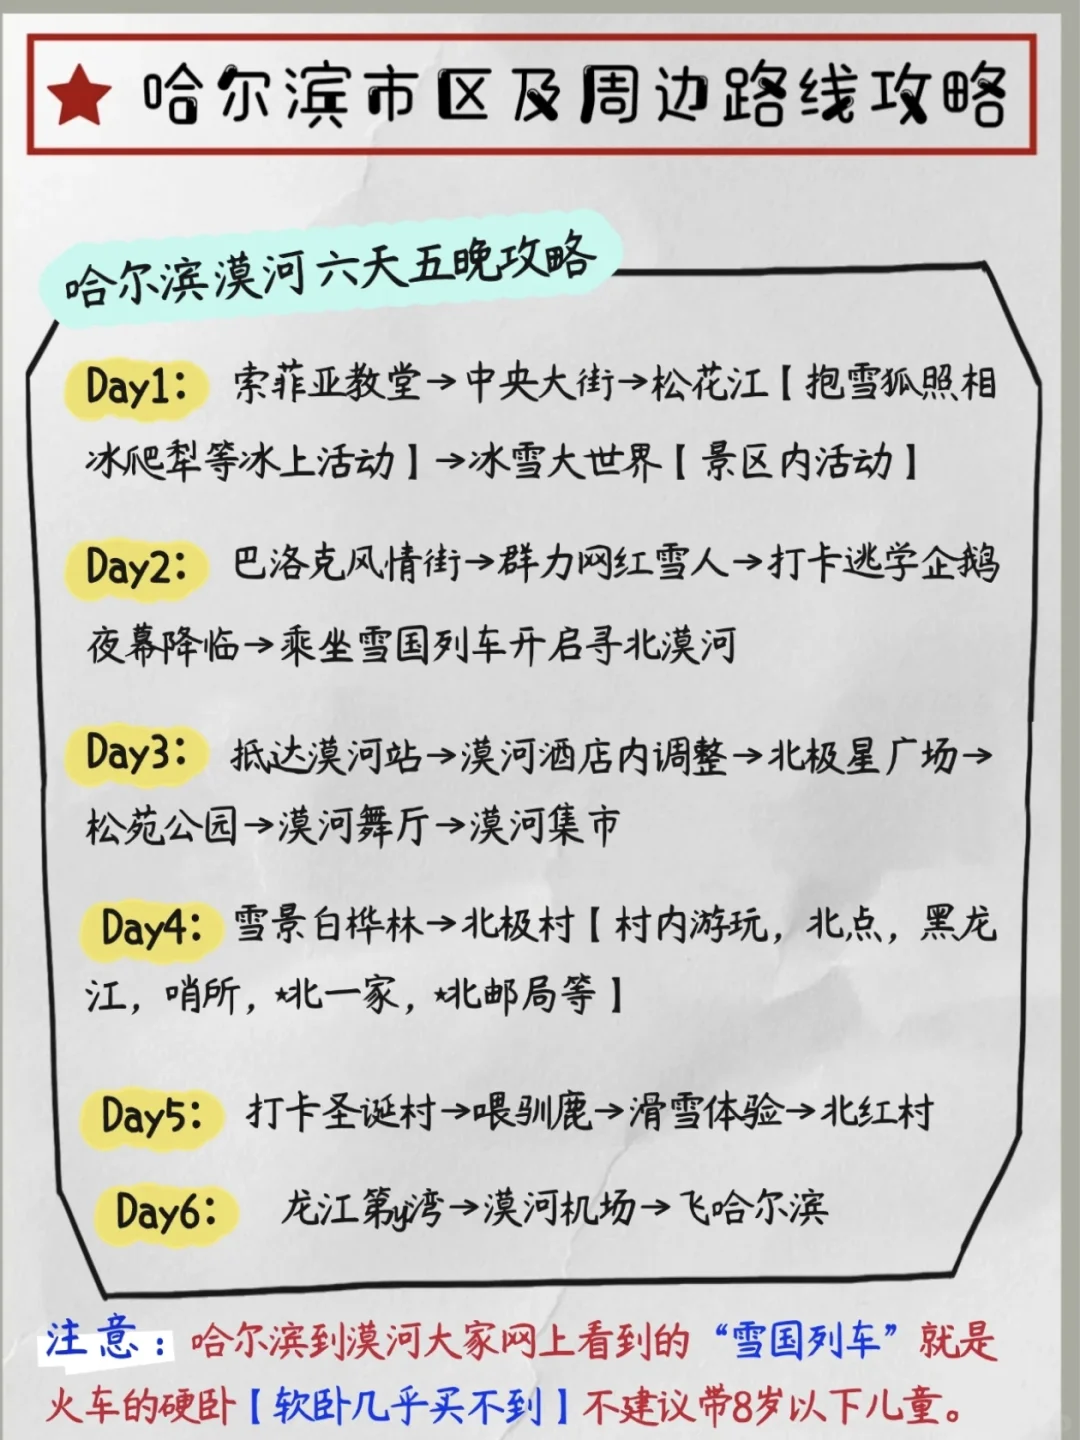 ★ 哈尔滨市区及周边路线攻略
哈尔滨漠河六天五晚攻略
Day1: 索菲亚教堂→中央大街→松花江【抱雪狐照相
冰爬犁等冰上活动】→冰雪大世界【景区内活动】
Day2: 巴洛克风情街→群力网红雪人→打卡逃学企鹅
夜幕降临→乘坐雪国列车开启寻北漠河
Day3: 抵达漠河站→漠河酒店内调整→北极星广场→
松苑公园→漠河舞厅→漠河集市
Day4: 雪景白桦林→北极村【村内游玩，北点，黑龙
江，哨所，★北一家，★北邮局等】
Day5: 打卡圣诞村→喂驯鹿→滑雪体验→北红村
Day6: 龙江第y湾→漠河机场→飞哈尔滨
注意：哈尔滨到漠河大家网上看到的“雪国列车”就是
火车的硬卧【软卧几乎买不到】不建议带8岁以下儿童。